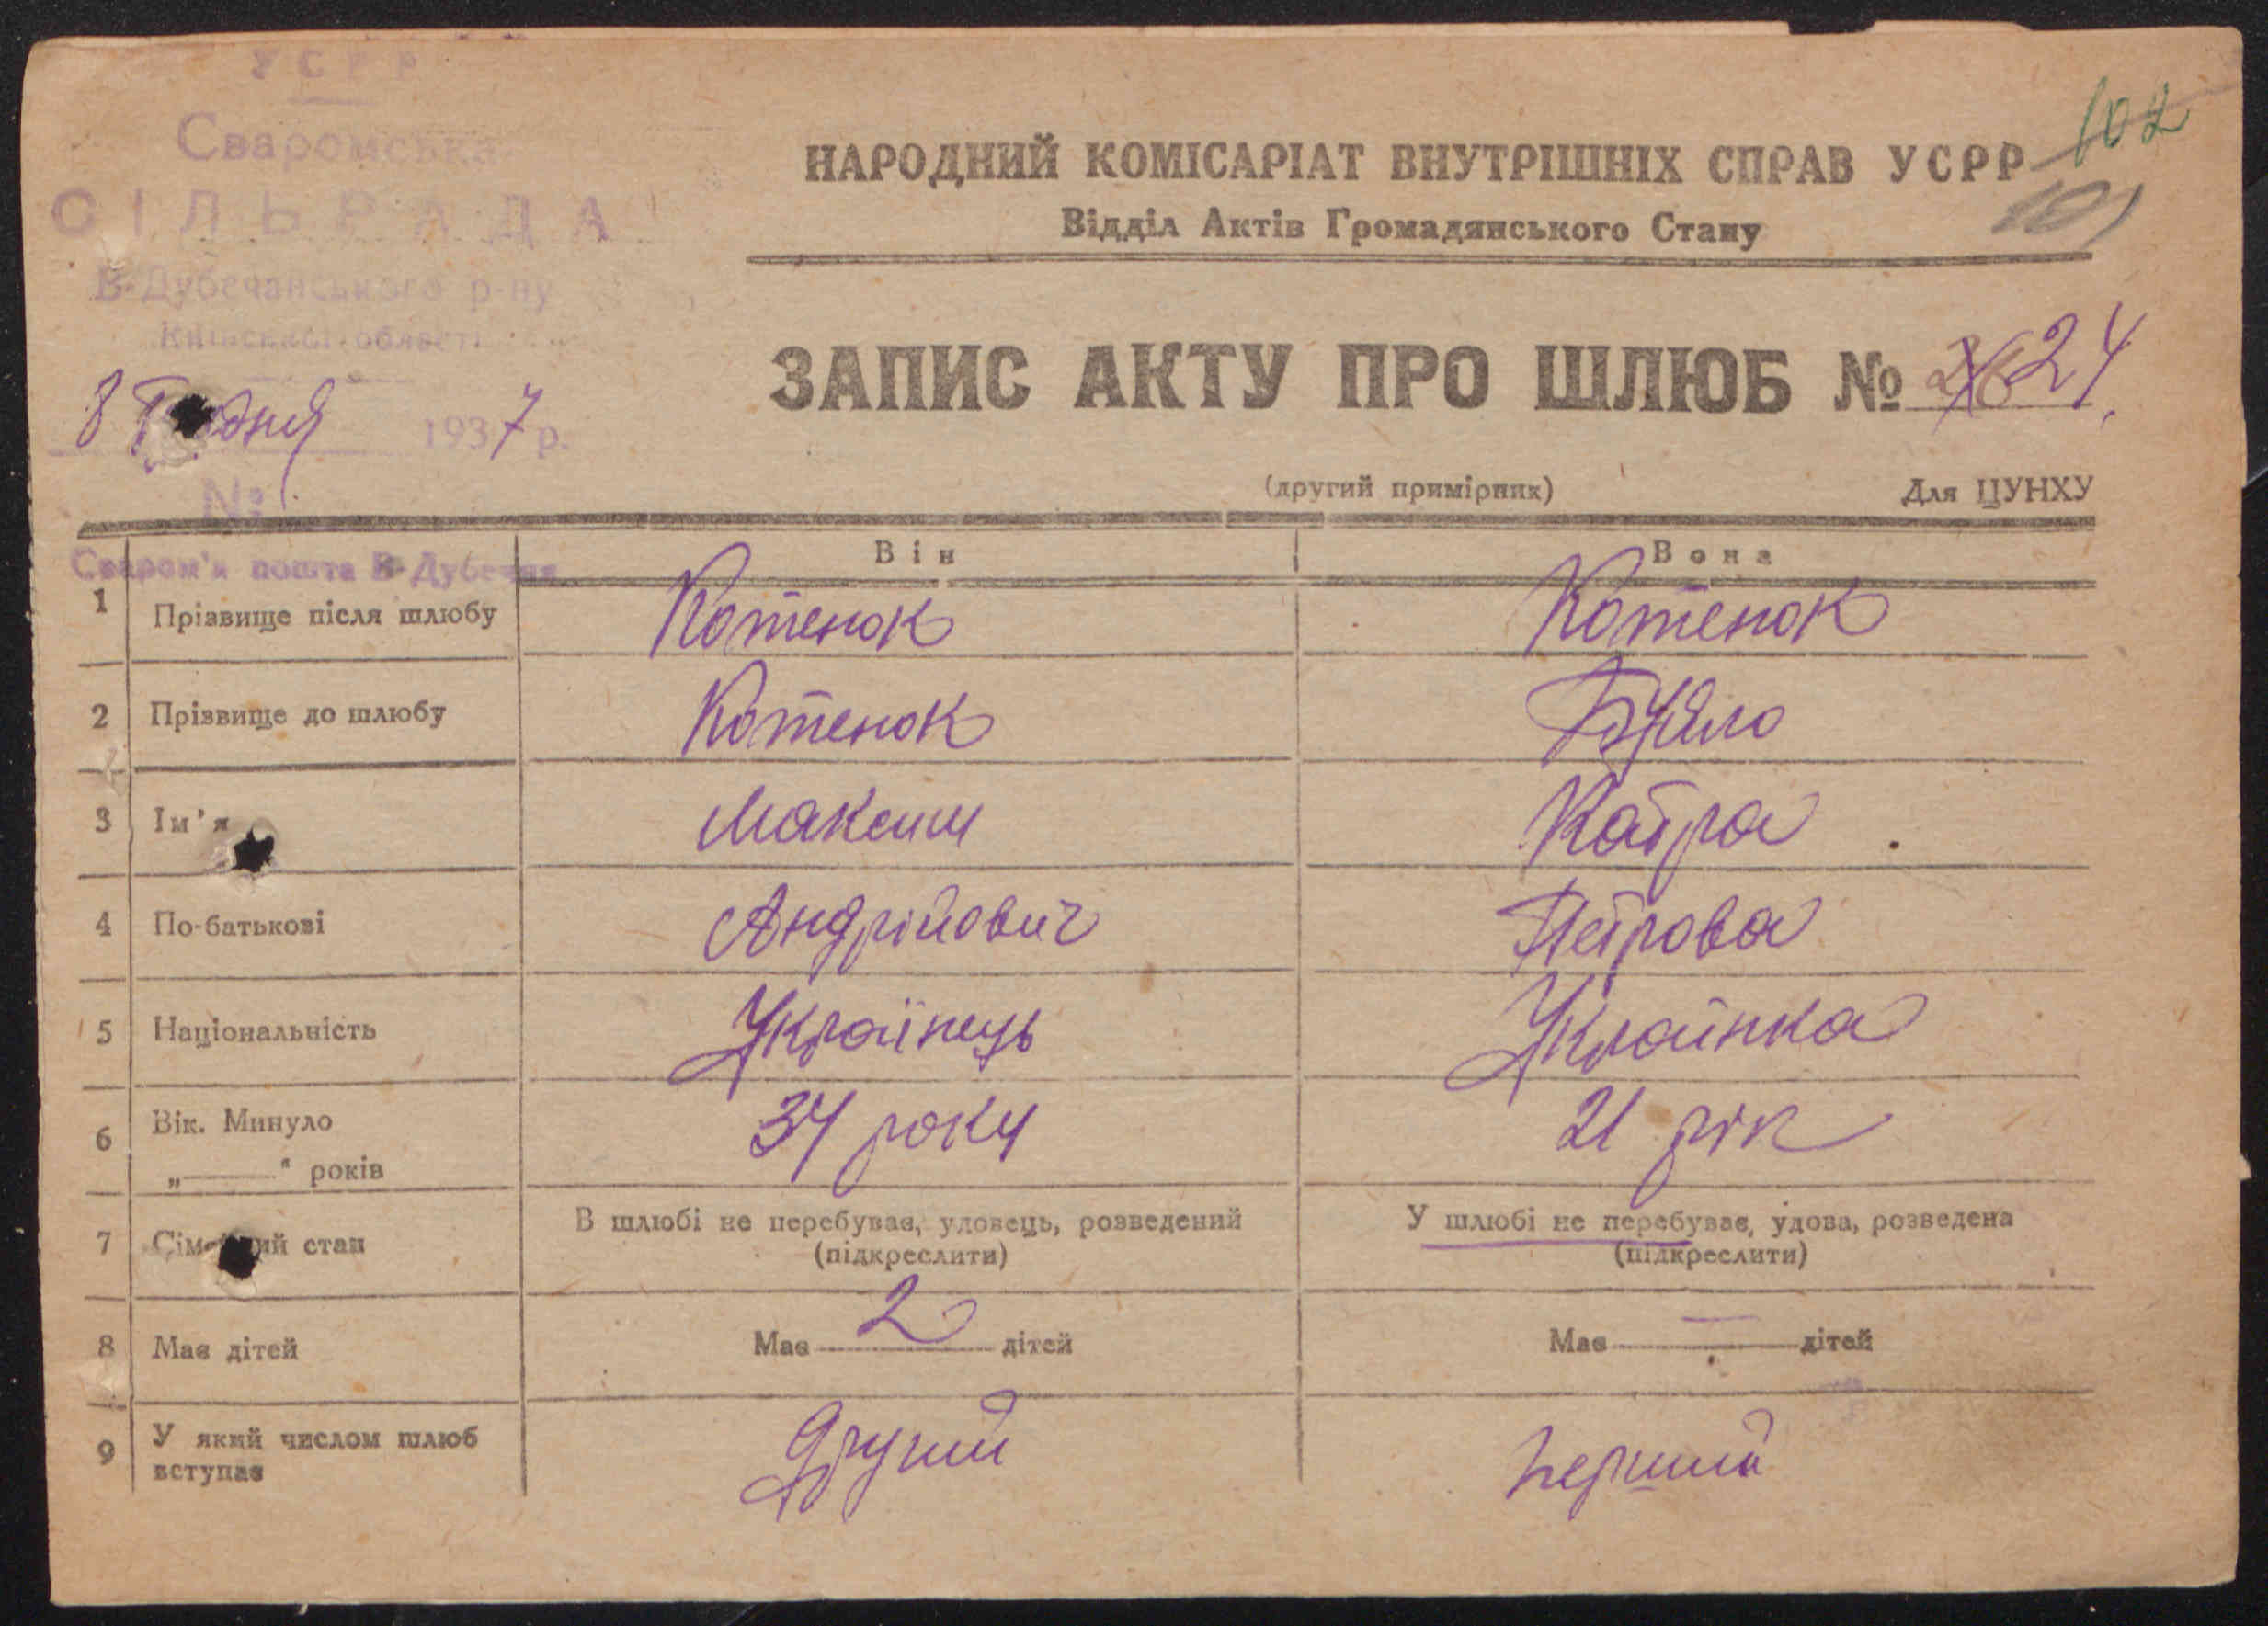 УСРР
Сваромська
СІЛЬРАДА
В-Дубечанського р-ну
Київської області
8 Грудня 1937 р.
№
Сваром'я пошта В-Дубечня
102
101
НАРОДНИЙ КОМІСАРІАТ ВНУТРІШНІХ СПРАВ УСРР
Відділ Актів Громадянського Стану
ЗАПИС АКТУ ПРО ШЛЮБ № 24
(другий примірник) Для ЦУНХУ
Він Вона
1 Прізвище після шлюбу Котенок Котенок
2 Прізвище до шлюбу Котенок
3 Ім'я Максим Катря
4 По-батькові Андрійович Петрова
5 Національність Українець Українка
6 Вік. Минуло 34 роки 21 рік
„——" років
7 Сімейний стан В шлюбі не перебував, удовець, розведений У шлюбі не перебував, удова, розведена
(підкреслити) (підкреслити)
8 Має дітей Має 2 дітей Має — дітей
9 У який числом шлюб Другий Перший
вступає